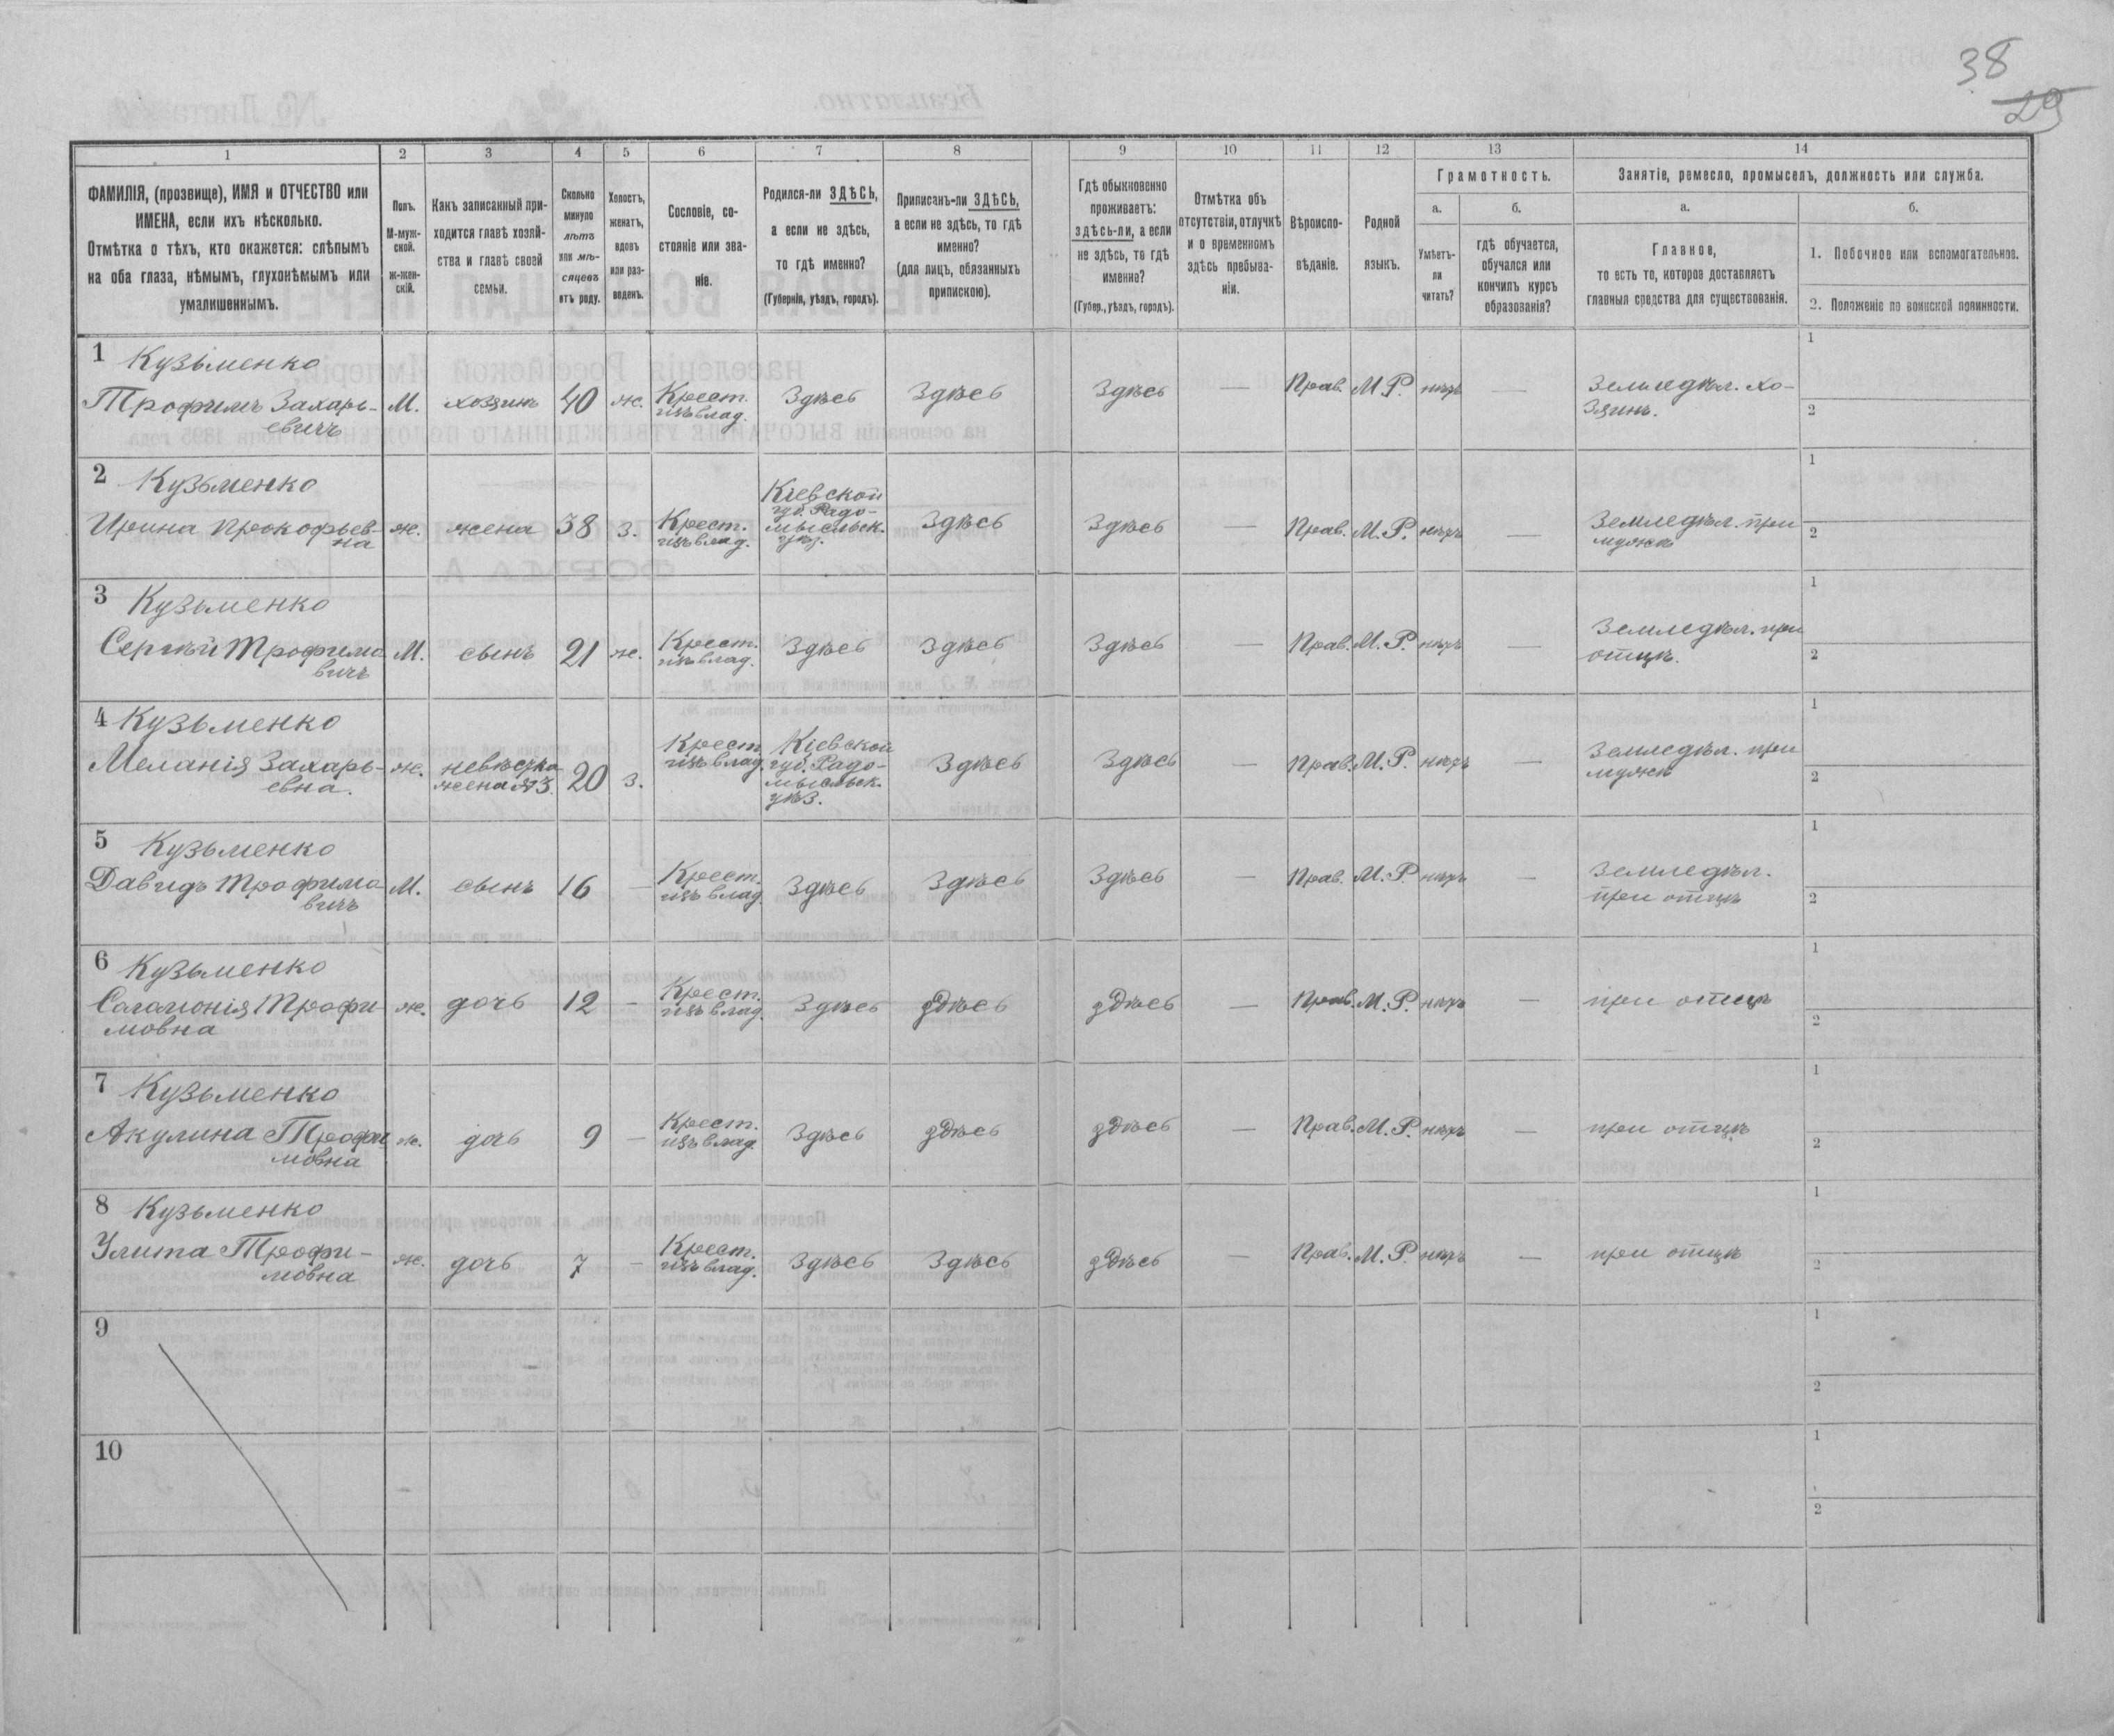 38
29
1 2 3 4 5 6 7 8 9 10 11 12 13 14
ФАМИЛІЯ, (прозвище), ИМЯ и ОТЧЕСТВО или
ИМЕНА, если ихъ нѣсколько.
Отмѣтка о тѣхъ, кто окажется: слѣпымъ
на оба глаза, нѣмымъ, глухонѣмымъ или
умалишеннымъ.
Полъ.
М-муж-
ской.
ж-жен-
скій.
Какъ записанный при-
ходится главѣ хозяй-
ства и главѣ своей
семьи.
Сколько
минуло
лѣтъ
или мѣ-
сяцевъ
отъ роду.
Холостъ,
женатъ,
вдовъ
или раз-
веденъ.
Сословіе, со-
стояніе или зва-
ніе.
Родился-ли ЗДѢСЬ,
а если не здѣсь,
то гдѣ именно?
(Губернія, уѣздъ, городъ).
Приписанъ-ли ЗДѢСЬ,
а если не здѣсь, то гдѣ
именно?
(для лицъ, обязанныхъ
припискою).
Гдѣ обыкновенно
проживаетъ:
здѣсь-ли, а если
не здѣсь, то гдѣ
именно?
(Губер., уѣздъ, городъ).
Отмѣтка объ
отсутствіи, отлучкѣ
и о временномъ
здѣсь пребыва-
ніи.
Вѣроиспо-
вѣданіе.
Родной
языкъ.
Грамотность.
а.
Умѣетъ-
ли
читать?
б.
гдѣ обучается,
обучался или
кончилъ курсъ
образованія?
Занятіе, ремесло, промыселъ, должность или служба.
а.
Главное,
то есть то, которое доставляетъ
главныя средства для существованія.
б.
1. Побочное или вспомогательное.
2. Положеніе по воинской повинности.
1 Кузьменко
Трофимъ Захарь-
евичъ
М. хозяинъ 40 ж. Крест.
изъ влад.
Здѣсь Здѣсь Здѣсь — Прав. М.Р. нѣтъ —
Земледѣл. хо-
зяинъ.
1
2
2 Кузьменко
Ирина Прокофьев-
на
ж. жена 38 з. Крест.
изъ влад.
Кіевской
губ. Радо-
мысльск.
уѣз.
Здѣсь Здѣсь — Прав. М.Р. нѣтъ —
Земледѣл. при
мужѣ
1
2
3 Кузьменко
Сергѣй Трофимо
вичъ
М. сынъ 21 ж. Крест.
изъ влад.
Здѣсь Здѣсь Здѣсь — Прав. М.Р. нѣтъ —
Земледѣл. при
отцѣ.
1
2
4 Кузьменко
Меланія Захарь-
евна.
ж. невѣстка
жена №3. 20 з.
Крест.
изъ влад.
Кіевской
губ. Радо-
мысльск.
уѣз.
Здѣсь Здѣсь — Прав. М.Р. нѣтъ —
Земледѣл. при
мужѣ
1
2
5 Кузьменко
Давидъ Трофимо
вичъ
М. сынъ 16 — Крест.
изъ влад.
Здѣсь Здѣсь Здѣсь — Прав. М.Р. нѣтъ —
Земледѣл.
при отцѣ
1
2
6 Кузьменко
Саламонія Трофи
мовна
ж. дочь 12 — Крест.
изъ влад.
Здѣсь здѣсь здѣсь — Прав. М.Р. нѣтъ —
при отцѣ
1
2
7 Кузьменко
Акулина Трофи
мовна
ж. дочь 9 — Крест.
изъ влад.
Здѣсь здѣсь здѣсь — Прав. М.Р. нѣтъ —
при отцѣ
1
2
8 Кузьменко
Улита Трофи-
мовна
ж. дочь 7 — Крест.
изъ влад.
Здѣсь Здѣсь здѣсь — Прав. М.Р. нѣтъ —
при отцѣ
1
2
9
1
2
10
1
2